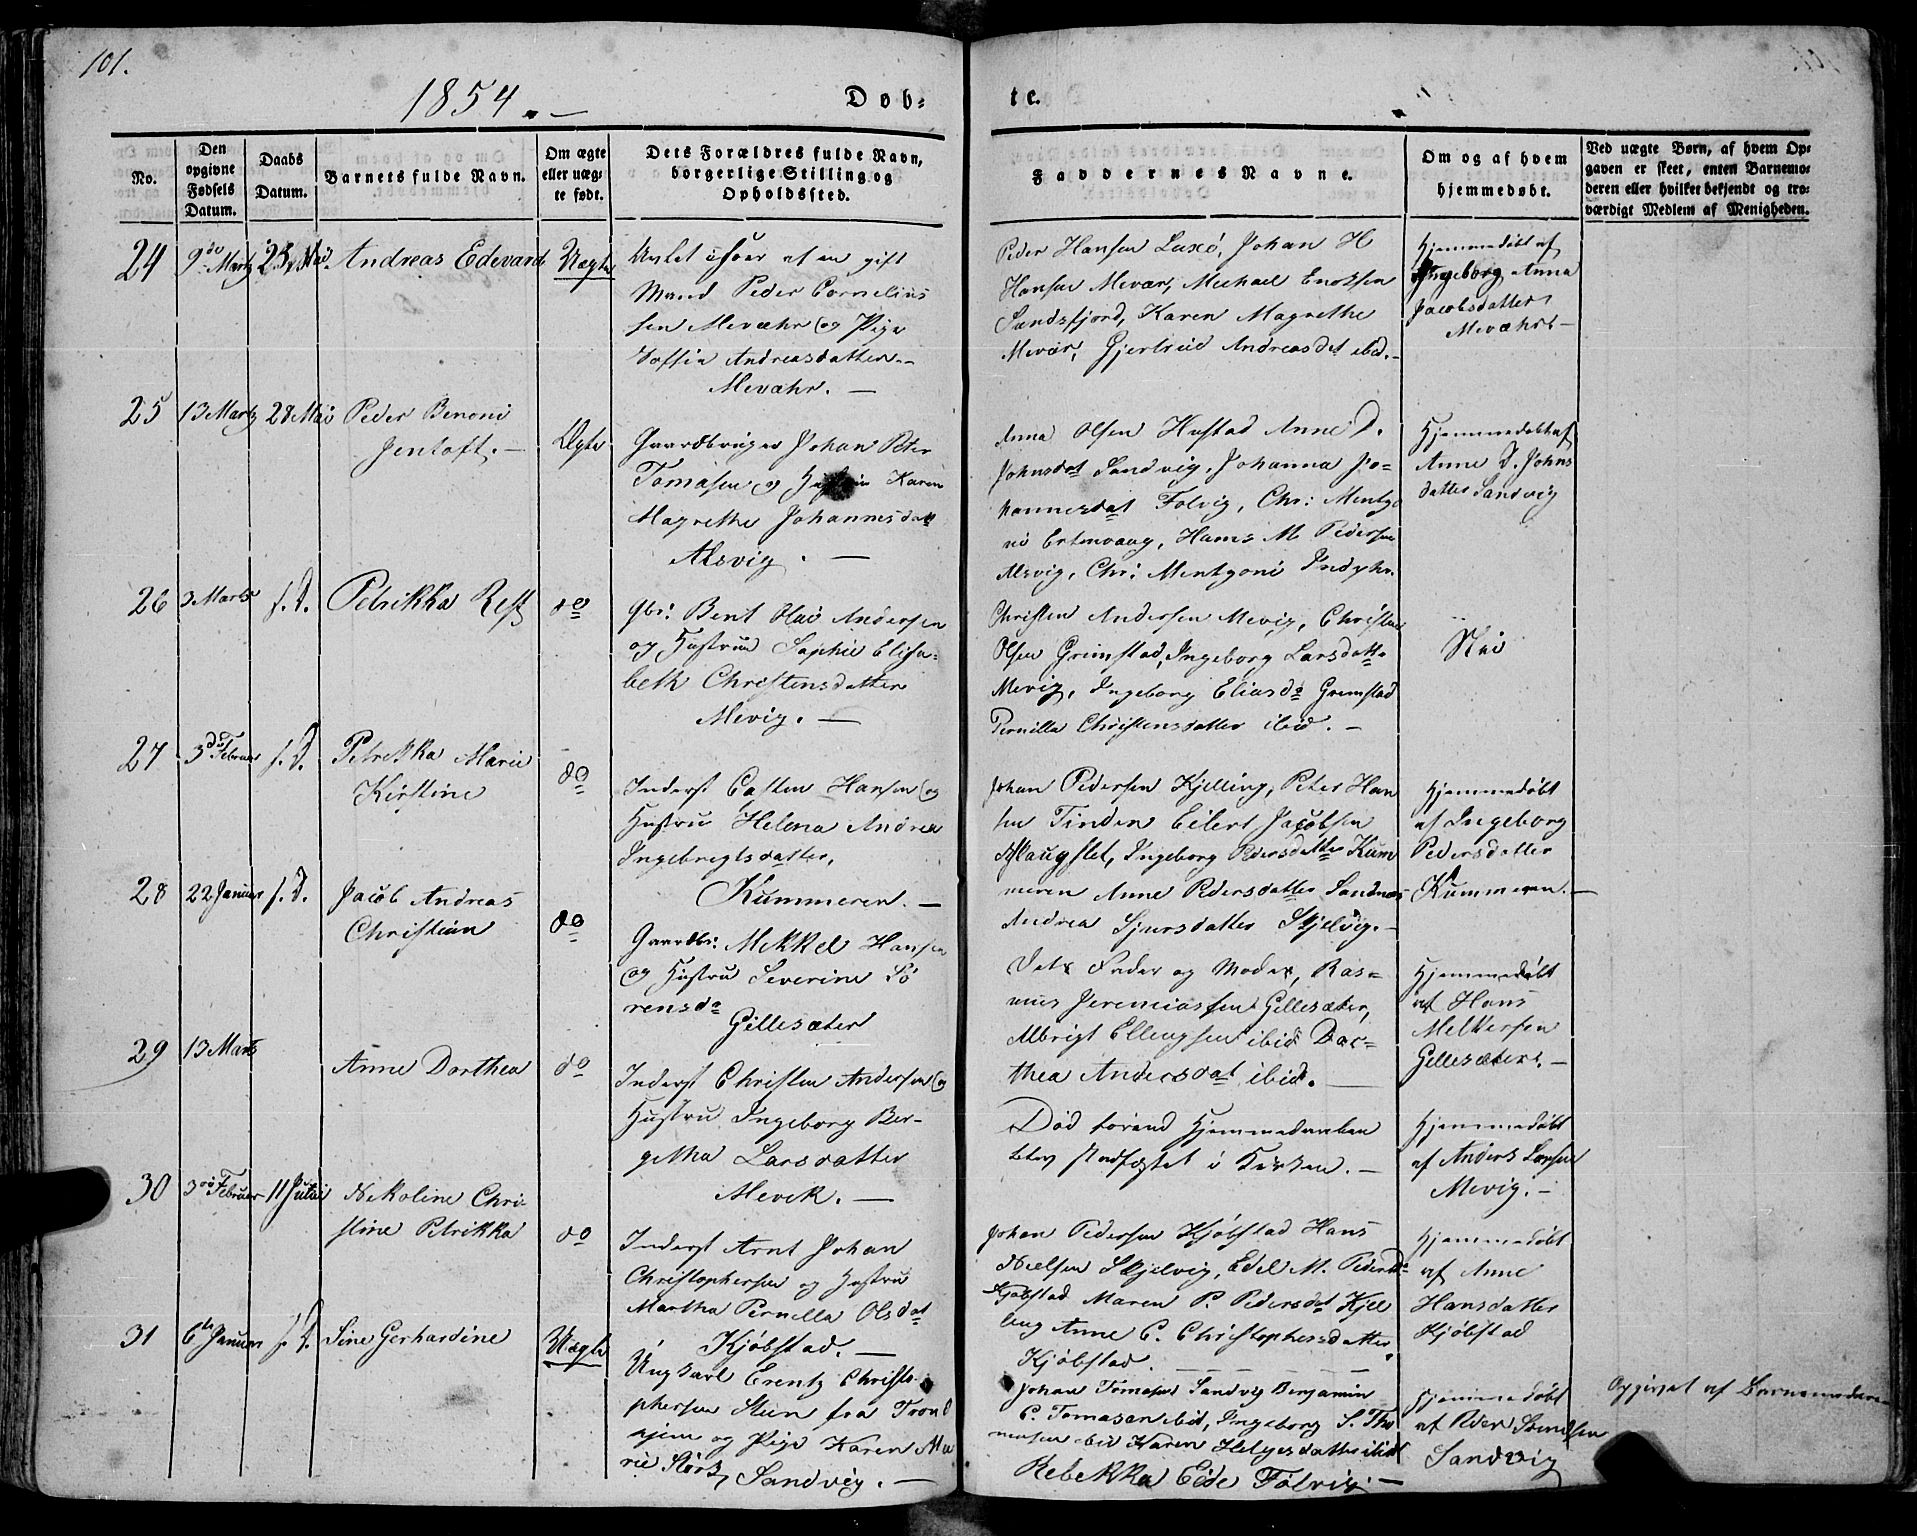 101.
1854. —
Døb-
te.
No.
Den
opgivne
Fødsels
Datum.
Daabs
Datum.
Barnets fulde Navn.
Om ægte
eller uæg-
te født.
Dets Forældres fulde Navn,
borgerlige Stilling og
Opholdssted.
Faddernes Navne.
Om og af hvem
hjemmedøbt.
Ved uægte Børn, af hvem Op-
gaven er skeet, enten Barnemo-
deren eller hvilket bekjendt og tro-
værdigt Medlem af Menigheden.
24
9de Martz
28 Mai
Andreas Edevard
Uægte
Avlet i Hoer af en gift
Mand Peder Cornelius
sen Mevæhr og Pige
Andreasdatter. -
Mevæhr. —
Peder Hansen Luxö, Johan H
Hansen Mevær, Michael Enoksen
Sandsfjord, Karen Magrethe
Mevær, Gjertrud Andreasdat ibid. -
Hjemmedøbt af
Ingeborg Anna
Jacobsdatter
Mevæhr -
25
13 Martz
28 Mai
Peder Benoni
Jentoft. -
Ægte
Gaardbruger Johan Peter
Tomasen og Karen
Magrethe Johannesdatt
Alsvig. —
Anna Olsen Hustad Anne D.
Johnsdat Sandvig, Johanna Jo-
hannesdat Folvig, Chr: Mentzo
ni Ertenvaag, Hans M. Pedersen
Alsvig, Chr: Mentzoni Indyhr.
Hjemmedøbt af
Anne D. Johns
datter Sandvig
26
3 Marts
s. D.
Petrikka
do
Gbr: Bent Olai Andersen
og Hustrue Sophie Elisa-
beth Christensdatter
Mevig. —
Christen Andersen Mevig, Christian
Olsen Grimstad, Ingeborg Larsdatt
Mevig, Ingeborg Eliasd Grimstad
Pernilla Christensdatter ibid. -
Nei
27
3de Februar
s. D.
Petrikka Marie
Kirstine
do
Inderst Casten Hansen og
Hustru Helena Andrea
Ingebregtsdatter,
Kummeren. —
Johan Pedersen Kjelling, Peter Han
sen Tinden Eilert Jacobsen
Haugslet, Ingeborg Pedersdatter Kum
meren Anne Pedersdatter Sandnæs
Andrea Sjursdatter Skjelvig. -
Hjemmedøbt
af Ingeborg
Pedersdatter
Kummeren. —
28
22 Januar
s. D.
Jacob Andreas
Christian
do
Gaardbr: Mekkel Hansen
og Hustru Severine Sö
rensda
Gillesæter
Dets Fader og Moder, Ras-
mus Jeremiassen Gillesæter,
Albrigt Ellingsen ibid Dor-
thea Andersdat ibid. —
Hjemmedøbt
af Hans
Melkersen
Gillesæter. -
29
13 Marts
Anne Dorthea
do
Inderst Christen Andersen og
Hustru Ingeborg Ber-
getha Larsdatter
Mevik. —
Död førend Hjemmedaaben
blev stadfæstet i Kirken. -
Hjemmedøbt
af Anders Larsen
Mevig. -
30
3de Februar
11 Juli
Nikoline Chri-
stine Petrikka
do
Inderst Arnt Johan
Christophersen og Hustru
Martha Pernilla Olsdat
Kjöbstad. —
Johan Pedersen Kjöbstad Hans
Nielsen Skjelvig, Edel M. Pedersd
Kjöbstad Maren P. Pedersdat Kjel
ling Anne C. Christophersdatter
Kjöbstad. — —
Hjemmedøbt
af Anne
Hansdatter
Kjöbstad
31
6te Januar
s. D.
Sine Gerhardine
Uægte
Ungkarl Erentz Christo-
phersen Steen fra Trond
hjem og Pige Karen Ma
rie Sandvig. —
Johan Tomasen Sandvig Benjamin
C. Tomasen ibid, Ingeborg S. Tho
masen ibid Karen Helgesdatter ibid
Rebekka Eide Folvig. —
Hjemmedøbt
af Peder Svendsen
Sandvig
Opgivet af Barnemoderen